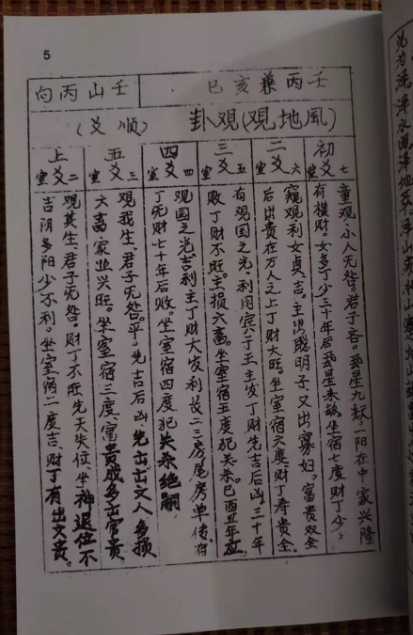 5
壬丙兼亥巳
壬山丙向
(風地觀)观卦
(順爻)
初爻室七
童观,小人无咎。君子吝。星九,一阳在中,家兴隆
有横财。女多丁少三十年后坐宿七度财丁少,
二爻室六
窥观利女贞,吉。主出聪明子又出寡妇,富贵双全
后出贵在万人之上丁财大旺。坐室宿六度,财丁寿贵全。
三爻室五
有观国之光,利用宾于王主发丁财先吉后凶三十年
败丁财不旺。主损六畜。坐室宿五度犯关杀。巳酉丑年应
四爻室四
观国之光,吉利主丁财大发利长二三房尾房单传。存
丁无财七十年后败。坐室宿四度犯关杀绝嗣
五爻室三
观我生,君子无咎。平。先吉后凶,先出出文人多损
六畜家业兴旺。坐室宿三度,富贵成多出富贵
上爻室二
观其生,君子无咎。财丁不旺先天失位,坐神退位不
吉阴多阳少不利。坐室宿二度吉,财丁有出文贵。